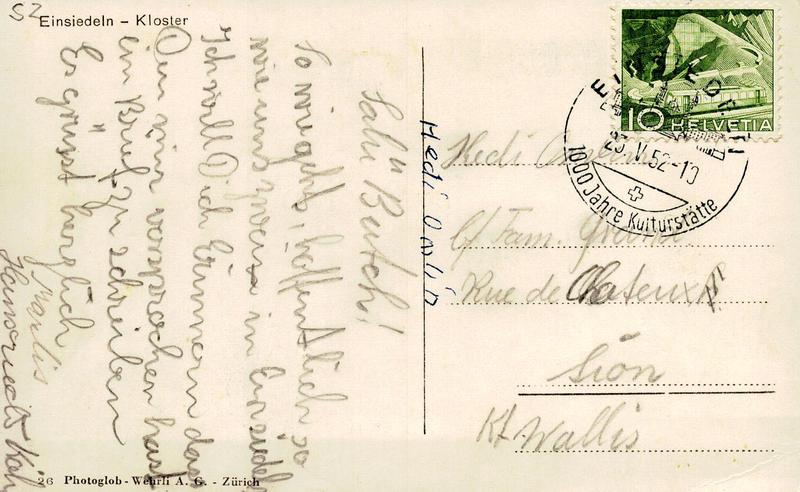 SZ
Einsiedeln – Kloster
Salü Butch!
So wie gehts, hoffentlich so
wie uns zweien in Einsiedel
Ich will Dich erinnern das
Du mir versprochen hast
ein Brief zu schreiben
Es grüsst herzlich
Marlis
Hansruedi
26 Photoglob - Wehrli A. G. - Zürich
Hedi
10 HELVETIA
EINSIEDELN
23.V.52-10
1000 Jahre Kulturstätte
Hedi
c/ Fam.
Rue de Chateux
Sion
Kt Wallis